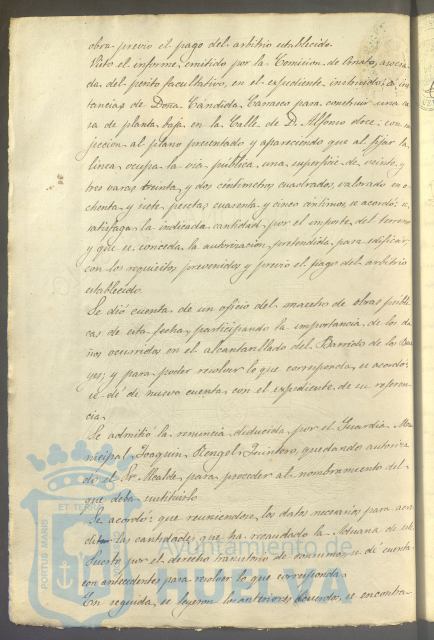 obra previo el pago del arbitrio establecido.
Visto el informe, emitido por la Comision de Ornato, asocia
da del perito facultativo, en el expediente instruido, á ins
tancias de Doña Cándida Carrasco para construir una ca
sa de planta baja en la Calle de D. Alfonso doce, con su
jeccion al plano presentado y apareciendo que al fijar la
linea ocupa la via publica una superficie de veinte y
tres varas treinta y dos centimetros cuadrados, valorado en o
chenta y siete pesetas cuarenta y cinco centimos, se acordó: se
satisfaga la indicada cantidad por el importe del terreno
y que se conceda la autorizacion pretendida para edificar,
con los requisitos prevenidos y previo el pago del arbitrio
establecido.
Se dió cuenta de un oficio del maestro de obras publi
cas de esta fecha, participando la importancia de los da
ños ocurridos en el alcantarillado del Barrido de los
yes; y para poder resolver lo que corresponda, se acordó:
se dé de nuevo cuenta con el expediente de su referen
cia.
Se admitió la renuncia deducida por el Guardia Mu
nicipal Joaquin Rengel Quintero, quedando autoriza
do el Sr. Alcalde para proceder al nombramiento del
que deba sustituirlo.
Se acordó: que reuniendose los datos necesarios para acre
ditar las cantidades que ha recaudado la Aduana de este
Puerto por el derecho transitorio de consumos, se dé cuenta
con antecedentes para resolver lo que corresponda.
En seguida, se leyeron los anteriores acuerdos, se encontra
PORTUS MARIS
ET TERRÆ
Ayuntamiento de
HUELVA